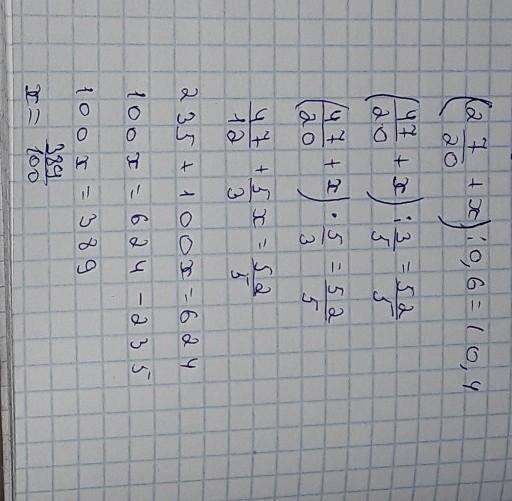 (2 7/20 + x) : 0,6 = 10,4
(47/20 + x) : 3/5 = 52/5
(47/20 + x) · 5/3 = 52/5
47/12 + 5/3 x = 52/5
235 + 100x = 624
100x = 624 - 235
100x = 389
x = 389/100